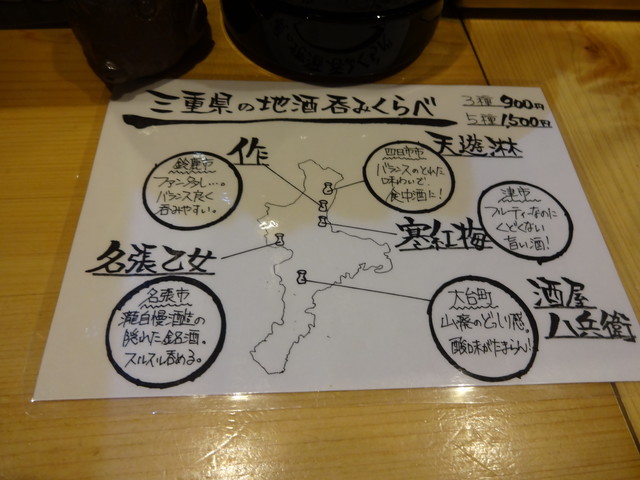 三重県の地酒呑みくらべ
3種 900円
5種 1,500円
作
鈴鹿市
ファン多し…。
バランス良く
呑みやすい。
天遊琳
四日市市
バランスのとれた
味わいで、
食中酒に!
寒紅梅
津市
フルーティなのに
くどくない
旨い酒!
名張乙女
名張市
瀧自慢酒造の
隠れた銘酒。
スルスル呑める。
酒屋
八兵衛
大台町
山廃のどっしり感。
酸味がたまらん!